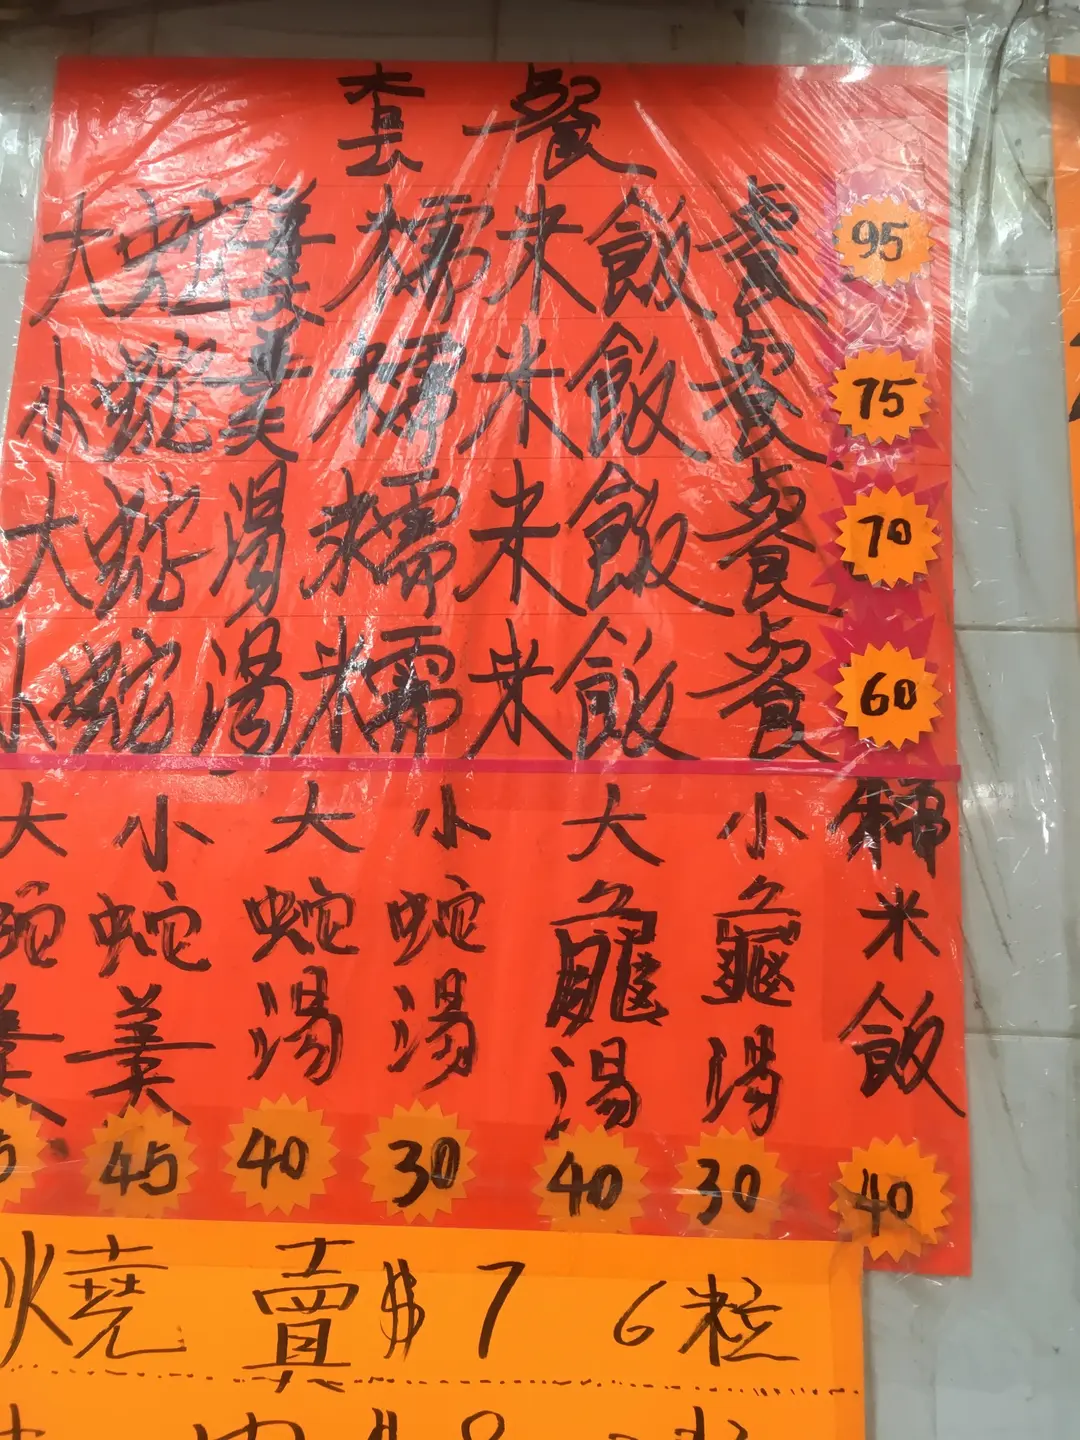 套餐
大蛇羹糯米飯餐 95
小蛇羹糯米飯餐 75
大蛇湯糯米飯餐 70
小蛇湯糯米飯餐 60
大蛇羹
小蛇羹 45
大蛇湯 40
小蛇湯 30
大龜湯 40
小龜湯 30
糯米飯 40
燒賣$7 6粒